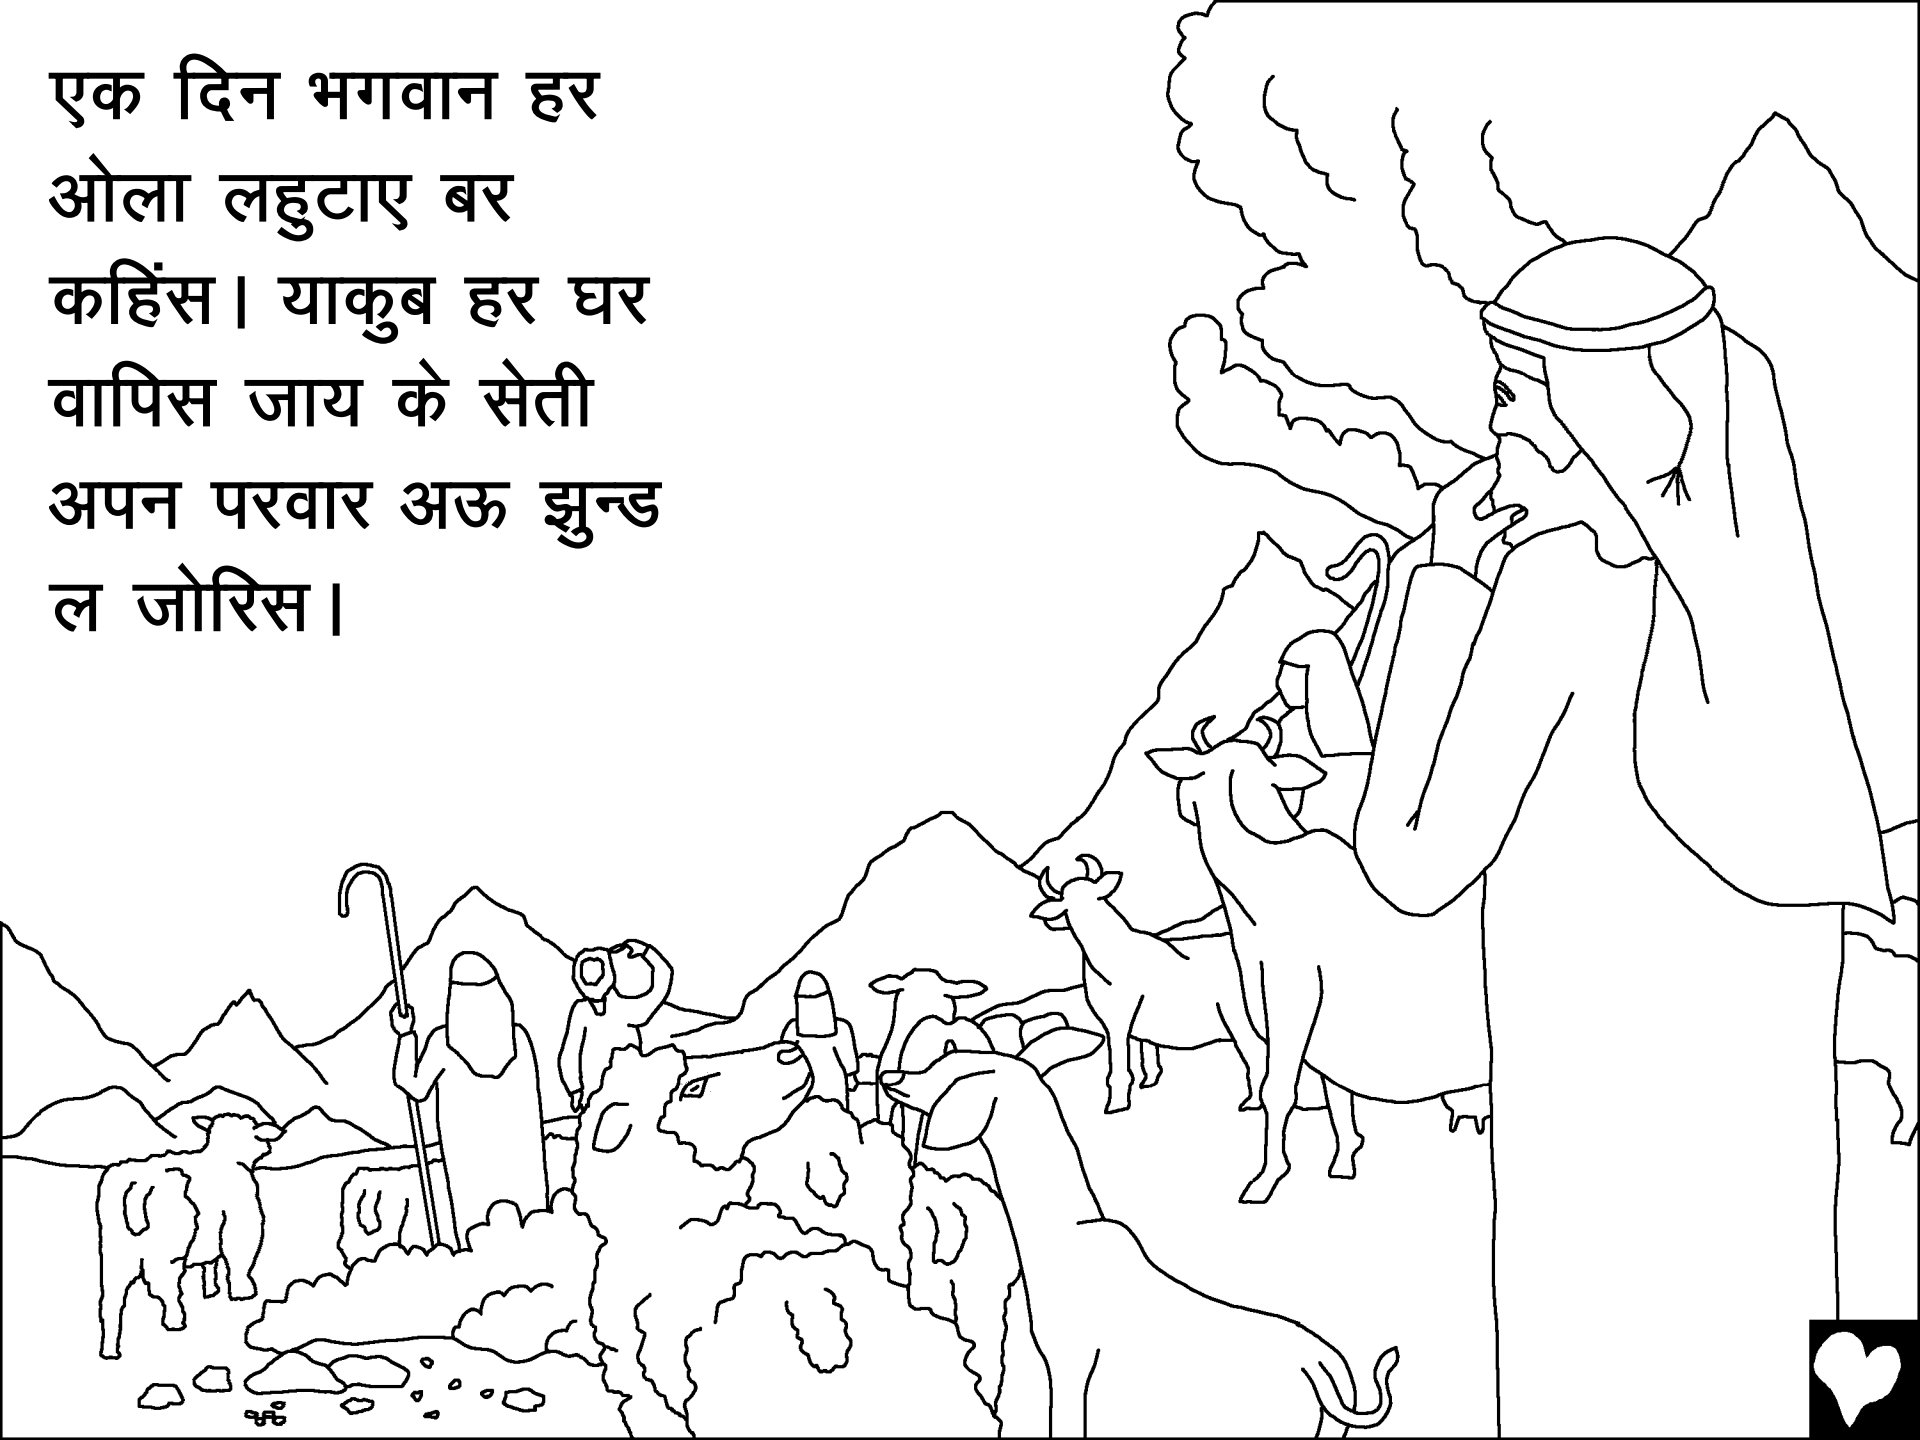 एक दिन भगवान हर
ओला लहुटाए बर
कहिंस। याकुब हर घर
वापिस जाय के सेती
अपन परवार अऊ झुन्ड
ल जोरिस।